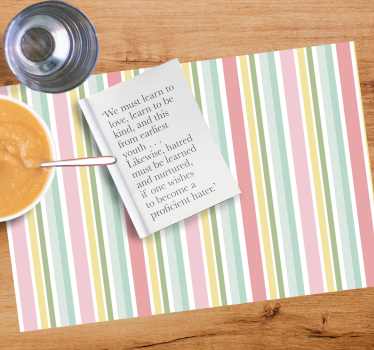 'We must learn to
love, learn to be
kind, and this
from earliest
youth . . .
Likewise, hatred
must be learned
and nurtured,
if one wishes
to become a
proficient hater.'